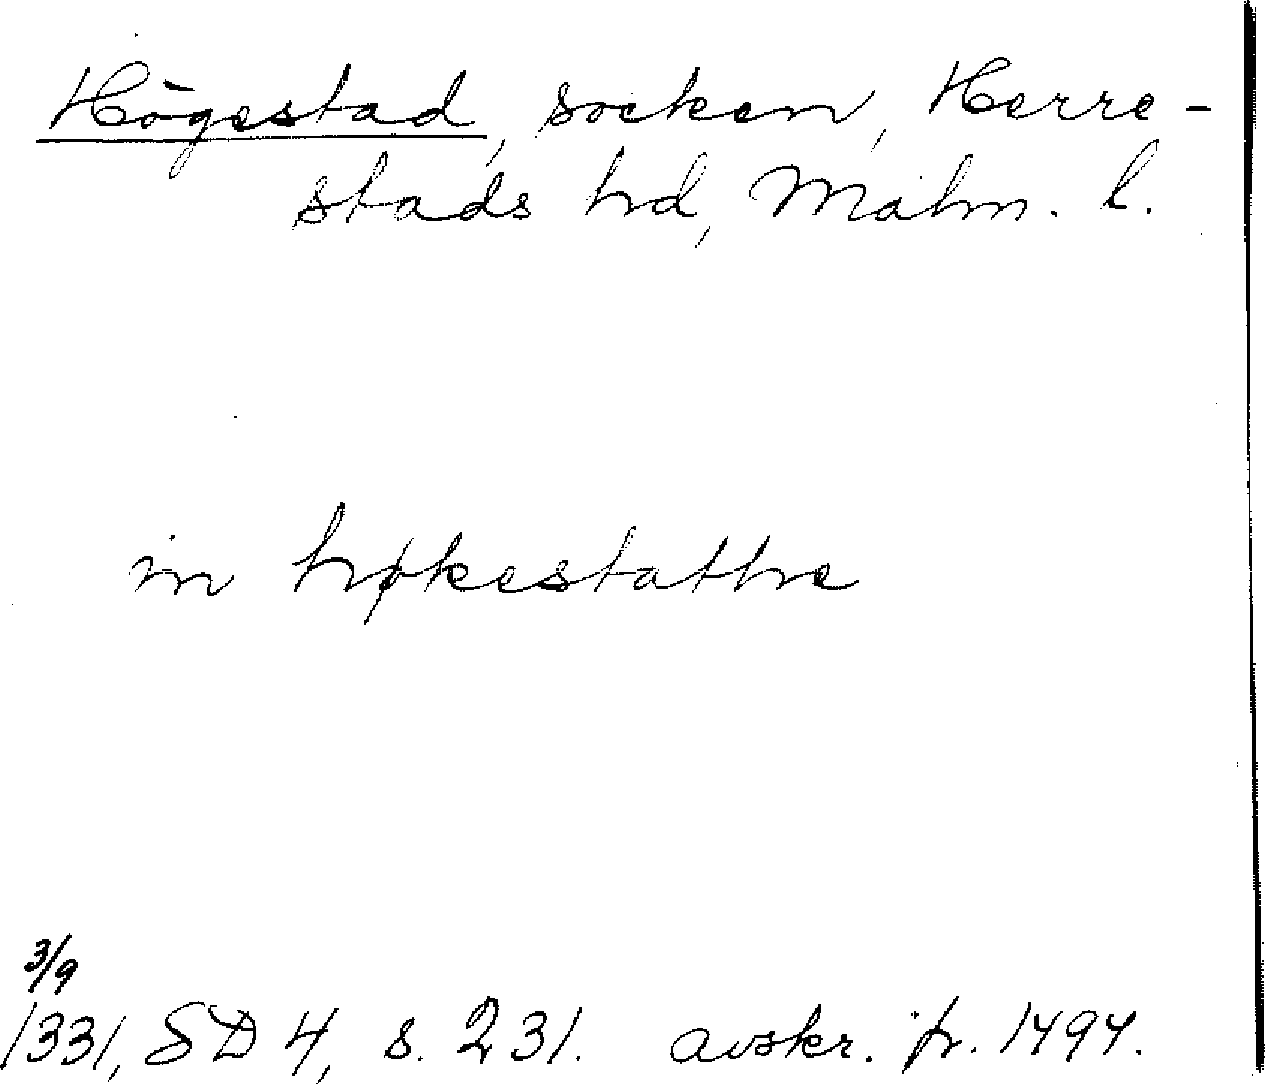 Högestad, socken, Herre-
stads hd, Malm. l.
in høkestathe
3/9
1331, SD 4, s. 231. avskr. fr. 1494.